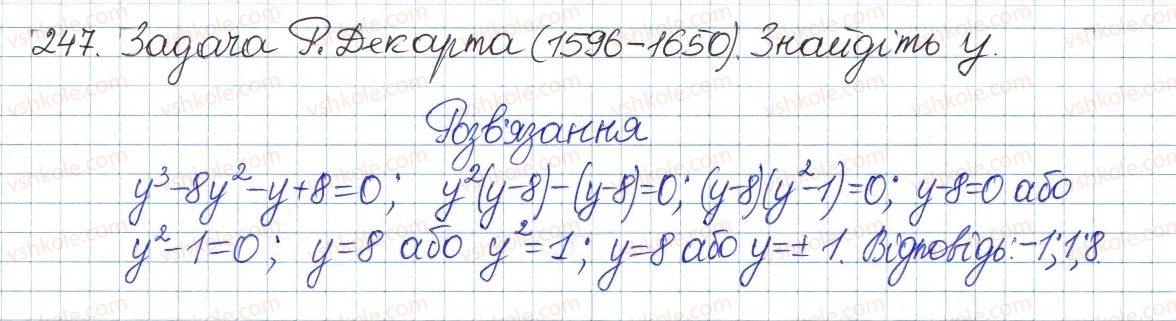 247. Задача Р. Декарта (1596-1650). Знайдіть y.
Розв'язання
y³-8y²-y+8=0; y²(y-8)-(y-8)=0; (y-8)(y²-1)=0; y-8=0 або
y²-1=0; y=8 або y²=1; y=8 або y=±1. Відповідь: -1; 1; 8.